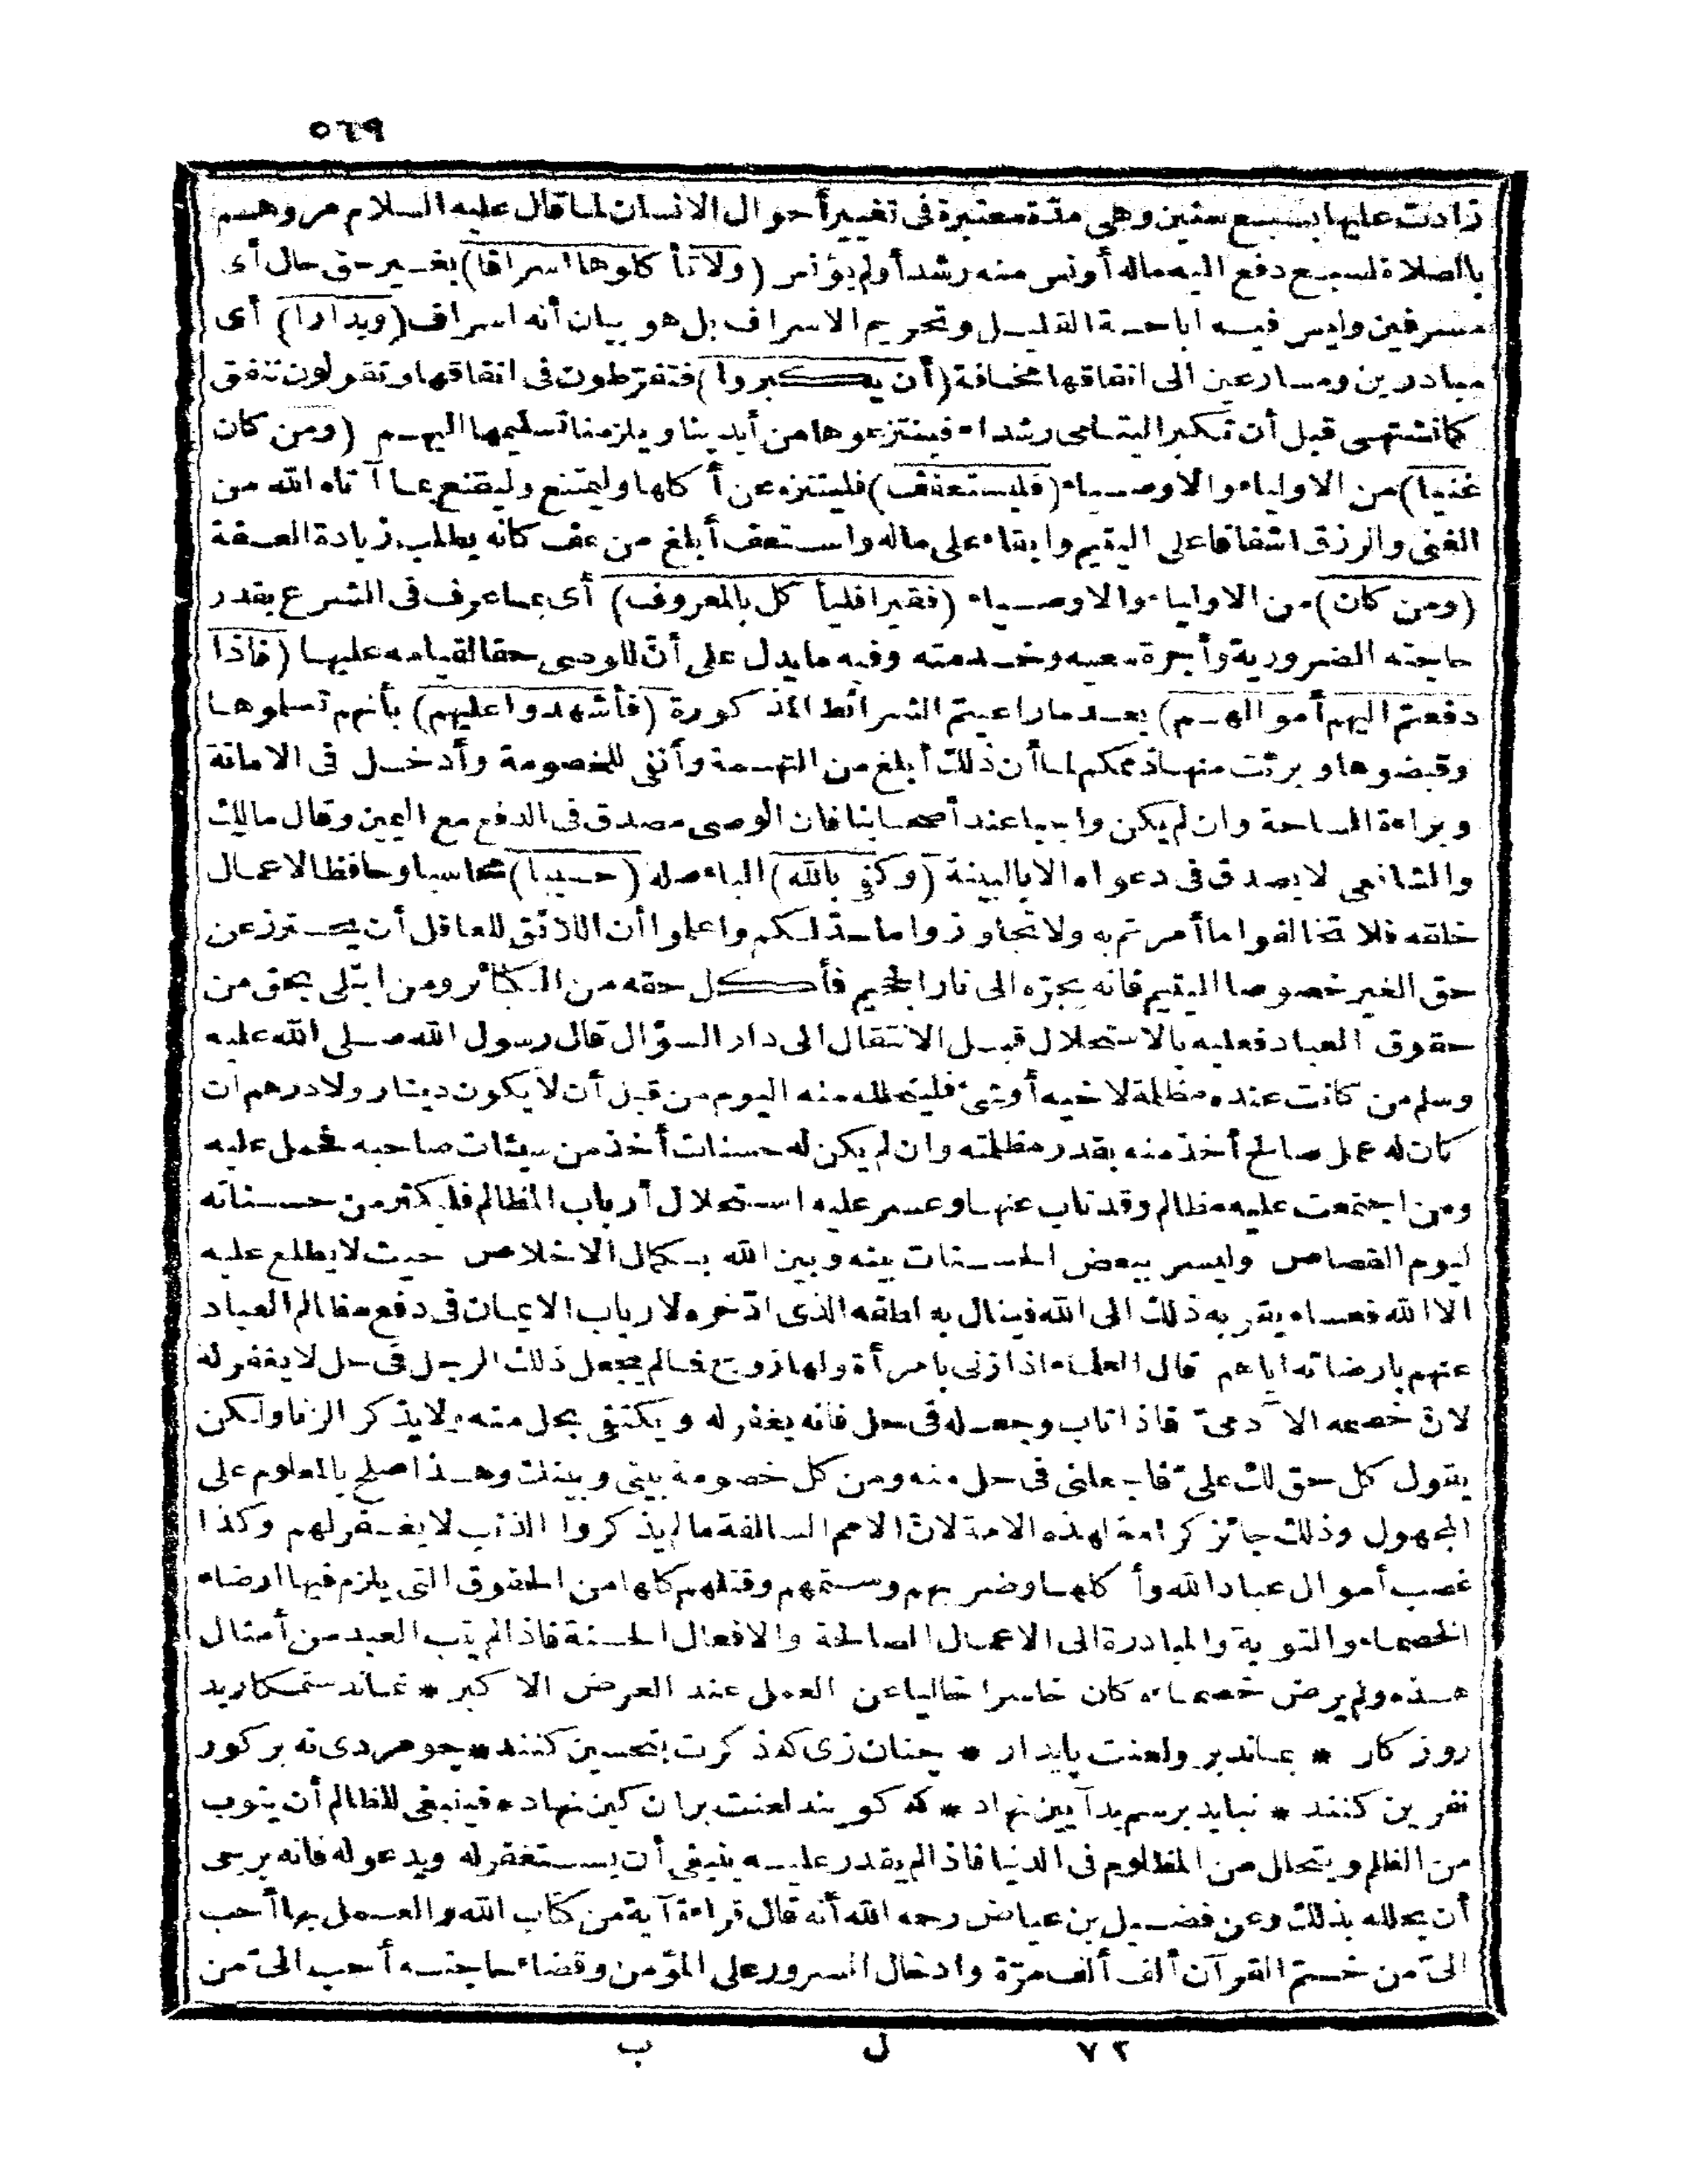 ٥٦٩
زادت عليها بسبع سنين وهى مدّة معتبرة فى تغيير أحوال الانسان لما قال عليه السلام مروهم
بالصلاة لسبع دفع اليه ماله أونس منه رشد أولم يؤنس (ولا تأكلوها اسرافا) بغير حق حال أى
مسرفين وليس فيه اباحة القليل وتحريم الاسراف بل هو بيان أنه اسراف (وبدارا) أى
مبادرين ومسارعين الى انفاقها مخافة (أن يكبروا) فتفرّطون فى انفاقها وتقولون ننفق
كما نشتهى قبل أن تكبر اليتامى رشداء فينتزعوها من أيدينا ويلزمنا تسليمها اليهم (ومن كان
غنيا) من الاولياء والاوصياء (فليستعفف) فليتنزه عن أكلها وليمتنع وليقنع بما آتاه الله من
الغنى والرزق اشفاقا على اليتيم وابقاء على ماله واستعف أبلغ من عف كانه يطلب زيادة العفة
(ومن كان) من الاولياء والاوصياء (فقيرا فليأكل بالمعروف) أى بما عرف فى الشرع بقدر
حاجته الضرورية وأجرة سعيه وخدمته وفيه ما يدل على أنّ للوصى حقا لقيامه عليها (فاذا
دفعتم اليهم أموالهم) بعد ما راعيتم الشرائط المذكورة (فأشهدوا عليهم) بأنهم تسلموها
وقبضوها وبرئت منها ذممكم لما أن ذلك أبلغ من التهمة وأنفى للخصومة وأدخل فى الامانة
وبراءة الساحة وان لم يكن واجبا عند أصحابنا فان الوصى مصدق فى الدفع مع اليمين وقال مالك
والشافعى لا يصدق فى دعواه الا بالبينة (وكفى بالله) الباء صله (حسيبا) محاسبا وحافظا لاعمال
خلقه فلا تخالفوا ما أمرتم به ولا تجاوزوا ما حدّ لكم واعلموا أن اللائق للعاقل أن يحترز عن
حق الغير خصوصا اليتيم فانه يجرّه الى نار الجحيم فأكل حقه من الكبائر ومن ابتلى بحق من
حقوق العباد فعليه بالاستحلال قبل الانتقال الى دار السؤال قال رسول الله صلى الله عليه
وسلم من كانت عنده مظلمة لاخيه أو شئ فليتحلله منه اليوم من قبل أن لا يكون دينار ولا درهم ان
كان له عمل صالح أخذ منه بقدر مظلمته وان لم يكن له حسنات أخذ من سيئات صاحبه فحمل عليه
ومن اجتمعت عليه مظالم وقد تاب عنها وعسر عليه استحلال أرباب المظالم فليكثر من حسناته
ليوم القصاص وليسر ببعض الحسنات بينه وبين الله بكمال الاخلاص حيث لا يطلع عليه
الا الله فعساه يقربه ذلك الى الله فينال به لطفه الذى ادّخره لارباب الايمان فى دفع مظالم العباد
عنهم بارضائه اياهم قال العلماء اذا زنى بامرأة ولها زوج فما لم يجعل ذلك الرجل فى حل لا يغفر له
لانّ خصمه الآدمىّ فاذا تاب وجعله فى حل فانه يغفر له ويكتفى بحل منه ولا يذكر الزنا ولكن
يقول كل حق لك علىّ فاجعلنى فى حل منه ومن كل خصومة بينى وبينك وهذا صلح بالمعلوم على
المجهول وذلك جائز كرامة لهذه الامة لانّ الامم السالفة ما لم يذكروا الذنب لا يغفر لهم وكذا
غصب أموال عباد الله وأكلها وضربهم وشتمهم وقتلهم كلها من الحقوق التى يلزم فيها ارضاء
الخصماء والتوبة والمبادرة الى الاعمال الصالحة والافعال الحسنة فاذا لم يتب العبد من أمثال
هذه ولم يرض خصماءه كان خاسرا خاليا عن العمل عند العرض الاكبر * نماند ستمكار بد
روزكار * بماند برو لعنت پايدار * چنان زى كه ذكرت بتحسين كنند * چو مردى نه بر كور
نفرين كنند * نبايد برسم بد آيين نهاد * كه كويند لعنت بران كين نهاد * فينبغى للظالم أن يتوب
من الظلم ويتحلل من المظلوم فى الدنيا فاذا لم يقدر عليه ينبغى أن يستغفر له ويدعو له فانه يرجى
أن يحلله بذلك وعن فضيل بن عياض رحمه الله أنه قال قراءة آية من كتاب الله والعمل بها أحب
الىّ من ختم القرآن ألف ألف مرّة وادخال السرور على المؤمن وقضاء حاجته أحب الىّ من
٧٢ ل ب